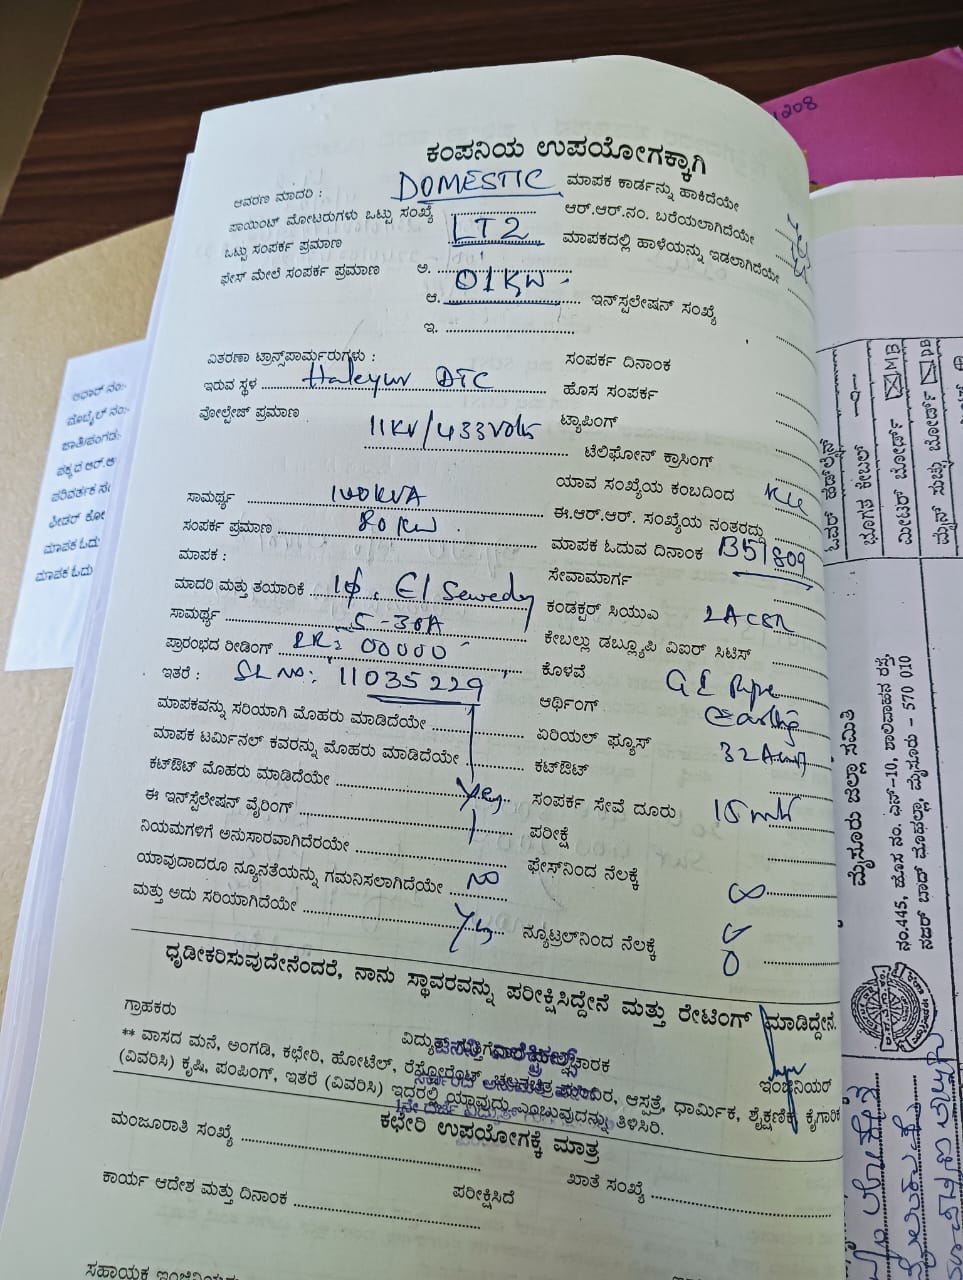 1208
ಕಂಪನಿಯ ಉಪಯೋಗಕ್ಕಾಗಿ
ಆವರಣ ಮಾದರಿ : DOMESTIC ಮಾಪಕ ಕಾರ್ಡನ್ನು ಹಾಕಿದೆಯೇ
ಪಾಯಿಂಟ್ ಮೋಟರುಗಳು ಒಟ್ಟು ಸಂಖ್ಯೆ ಆರ್.ಆರ್.ನಂ. ಬರೆಯಲಾಗಿದೆಯೇ
ಒಟ್ಟು ಸಂಪರ್ಕ ಪ್ರಮಾಣ LT2 ಮಾಪಕದಲ್ಲಿ ಹಾಳೆಯನ್ನು ಇಡಲಾಗಿದೆಯೇ
ಫೇಸ್ ಮೇಲೆ ಸಂಪರ್ಕ ಪ್ರಮಾಣ ಅ.
ಆ. 01KW ಇನ್‌ಸ್ಪಲೇಷನ್ ಸಂಖ್ಯೆ
ಇ.
ವಿತರಣಾ ಟ್ರಾನ್ಸ್‌ಪಾರ್ಮರುಗಳು : ಸಂಪರ್ಕ ದಿನಾಂಕ
ಇರುವ ಸ್ಥಳ Haleyur DTC ಹೊಸ ಸಂಪರ್ಕ
ವೋಲ್ಟೇಜ್ ಪ್ರಮಾಣ 11KV/433Volts ಟ್ಯಾಪಿಂಗ್
ಟೆಲಿಫೋನ್ ಕ್ರಾಸಿಂಗ್
ಸಾಮರ್ಥ್ಯ 100KVA ಯಾವ ಸಂಖ್ಯೆಯ ಕಂಬದಿಂದ
ಸಂಪರ್ಕ ಪ್ರಮಾಣ 80 KW ಈ.ಆರ್.ಆರ್. ಸಂಖ್ಯೆಯ ನಂತರದ್ದು
ಮಾಪಕ : ಮಾಪಕ ಓದುವ ದಿನಾಂಕ B57809
ಮಾದರಿ ಮತ್ತು ತಯಾರಿಕೆ 1φ, El Sewedy ಸೇವಾಮಾರ್ಗ
ಸಾಮರ್ಥ್ಯ 5-30A ಕಂಡಕ್ಟರ್ ಸಿಯುಎ 2ACSR
ಪ್ರಾರಂಭದ ರೀಡಿಂಗ್ 00000 ಕೇಬಲ್ಲು ಡಬ್ಲ್ಯೂಪಿ ವಿಐರ್ ಸಿಟಿಸ್
ಇತರೆ : SL No: 11035229 ಕೊಳವೆ GI Pipe
ಮಾಪಕವನ್ನು ಸರಿಯಾಗಿ ಮೊಹರು ಮಾಡಿದೆಯೇ ಆರ್ಥಿಂಗ್ earthing
ಮಾಪಕ ಟರ್ಮಿನಲ್ ಕವರನ್ನು ಮೊಹರು ಮಾಡಿದೆಯೇ ಏರಿಯಲ್ ಫ್ಯೂಸ್ 32Amp
ಕಟ್‌ಔಟ್ ಮೊಹರು ಮಾಡಿದೆಯೇ Yes ಕಟ್‌ಔಟ್
ಈ ಇನ್‌ಸ್ಪೆಲೇಷನ್ ವೈರಿಂಗ್ ಸಂಪರ್ಕ ಸೇವೆ ದೂರು 15 mtr
ನಿಯಮಗಳಿಗೆ ಅನುಸಾರವಾಗಿದೆರಯೇ ಪರೀಕ್ಷೆ
ಯಾವುದಾದರೂ ನ್ಯೂನತೆಯನ್ನು ಗಮನಿಸಲಾಗಿದೆಯೇ No ಫೇಸ್‌ನಿಂದ ನೆಲಕ್ಕೆ ∞
ಮತ್ತು ಅದು ಸರಿಯಾಗಿದೆಯೇ Yes ನ್ಯೂಟ್ರಲ್‌ನಿಂದ ನೆಲಕ್ಕೆ 0
ಧೃಡೀಕರಿಸುವುದೇನೆಂದರೆ, ನಾನು ಸ್ಥಾವರವನ್ನು ಪರೀಕ್ಷಿಸಿದ್ದೇನೆ ಮತ್ತು ರೇಟಿಂಗ್ ಮಾಡಿದ್ದೇನೆ.
ಗ್ರಾಹಕರು ಇಂಜಿನಿಯರ್
** ವಾಸದ ಮನೆ, ಅಂಗಡಿ, ಕಛೇರಿ, ಹೋಟೆಲ್, ರೆಸ್ಟೋರೆಂಟ್, ಆಸ್ಪತ್ರೆ, ಧಾರ್ಮಿಕ, ಶೈಕ್ಷಣಿಕ, ಕೈಗಾರಿಕೆ
(ವಿವರಿಸಿ) ಕೃಷಿ, ಪಂಪಿಂಗ್, ಇತರೆ (ವಿವರಿಸಿ) ಇದರಲ್ಲಿ ಯಾವುದು ಎಂಬುವುದನ್ನು ತಿಳಿಸಿರಿ.
ಕಛೇರಿ ಉಪಯೋಗಕ್ಕೆ ಮಾತ್ರ
ಮಂಜೂರಾತಿ ಸಂಖ್ಯೆ ಖಾತೆ ಸಂಖ್ಯೆ
ಕಾರ್ಯ ಆದೇಶ ಮತ್ತು ದಿನಾಂಕ ಪರೀಕ್ಷಿಸಿದೆ
ಆಧಾರ್ ನಂ:-
ಮೊಬೈಲ್ ನಂ:-
ಪರಿವರ್ತಕ ಸಂ
ಫೀಡರ್ ಕೋ
ಮಾಪಕ ಓದು
ಮಾಪಕ ಓದು
ಭೂಗತ ಕೇಬಲ್
ಮೀಟರ್ ಬೋರ್ಡ್
ಮೈಸೂರು ಜಿಲ್ಲಾ ಸಮಿತಿ
ನಂ.445, ಹೊಸ ನಂ. ಎನ್-10, ಶಾಲಿವಾಹನ ರಸ್ತೆ,
ನಜರ್ ಬಾದ್ ಮೊಹಲ್ಲಾ, ಮೈಸೂರು - 570 010